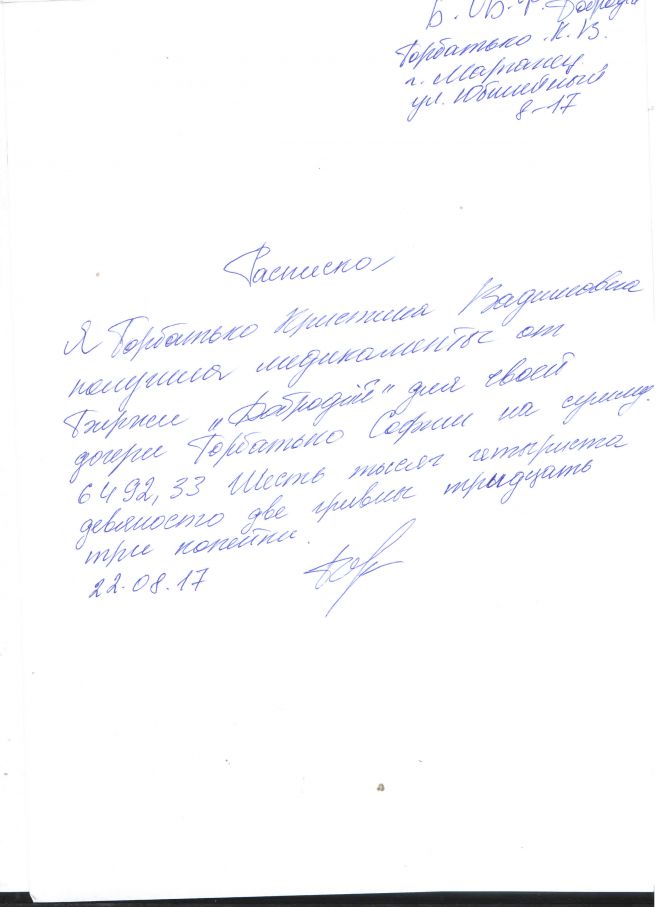 Б. Ив. Ф. Доброді
Горбатько К. В.
г. Марганец
ул. Юбилейный
8-17
Расписка
Я Горбатько Кристина Вадимовна
получила медикаменты от
Биржи „Добродій" для своей
дочери Горбатько Софии на сумму.
6492,33 Шесть тысяч четыриста
девяносто две гривны тридцать
три копейки.
22.08.17